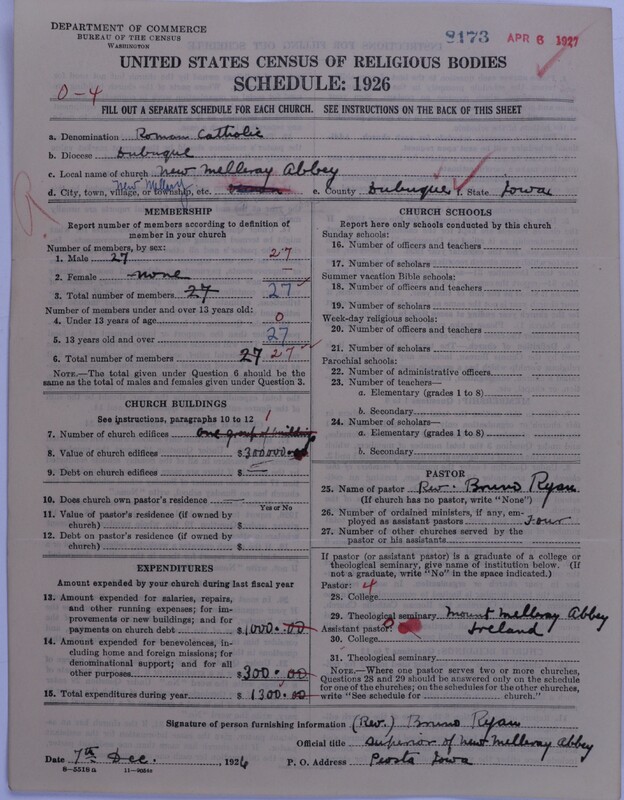 DEPARTMENT OF COMMERCE
BUREAU OF THE CENSUS
WASHINGTON
8173 APR 6 1927
UNITED STATES CENSUS OF RELIGIOUS BODIES
SCHEDULE: 1926
0-4
FILL OUT A SEPARATE SCHEDULE FOR EACH CHURCH. SEE INSTRUCTIONS ON THE BACK OF THIS SHEET
a. Denomination Roman Catholic
b. Diocese Dubuque
c. Local name of church New Melleray Abbey
d. City, town, village, or township, etc. New Mellray e. County Dubuque f. State Iowa
MEMBERSHIP
Report number of members according to definition of
member in your church
Number of members, by sex:
1. Male 27 27
2. Female none —
3. Total number of members 27 27
Number of members under and over 13 years old:
4. Under 13 years of age 0
5. 13 years old and over 27
6. Total number of members 27 27
NOTE.—The total given under Question 6 should be the
same as the total of males and females given under Question 3.
CHURCH BUILDINGS
See instructions, paragraphs 10 to 12
7. Number of church edifices one group of buildings 1
8. Value of church edifices $300000.00
9. Debt on church edifices $
10. Does church own pastor's residence
Yes or No
11. Value of pastor's residence (if owned by
church) $
12. Debt on pastor's residence (if owned by
church) $
EXPENDITURES
Amount expended by your church during last fiscal year
13. Amount expended for salaries, repairs,
and other running expenses; for im-
provements or new buildings; and for
payments on church debt $1000.00
14. Amount expended for benevolences, in-
cluding home and foreign missions; for
denominational support; and for all
other purposes $300.00
15. Total expenditures during year $1300.00
CHURCH SCHOOLS
Report here only schools conducted by this church
Sunday schools:
16. Number of officers and teachers
17. Number of scholars
Summer vacation Bible schools:
18. Number of officers and teachers
19. Number of scholars
Week-day religious schools:
20. Number of officers and teachers
21. Number of scholars
Parochial schools:
22. Number of administrative officers
23. Number of teachers—
a. Elementary (grades 1 to 8)
b. Secondary
24. Number of scholars—
a. Elementary (grades 1 to 8)
b. Secondary
PASTOR
25. Name of pastor Rev. Bruno Ryan
(If church has no pastor, write "None")
26. Number of ordained ministers, if any, em-
ployed as assistant pastors Four
27. Number of other churches served by the
pastor or his assistants
If pastor (or assistant pastor) is a graduate of a college or
theological seminary, give name of institution below. (If
not a graduate, write "No" in the space indicated.)
Pastor: 4
28. College
29. Theological seminary Mount Melleray Abbey
Assistant pastor: 0 Ireland
30. College
31. Theological seminary
NOTE.—Where one pastor serves two or more churches,
Questions 28 and 29 should be answered only on the schedule
for one of the churches; on the schedules for the other churches,
write "See schedule for church."
Signature of person furnishing information (Rev.) Bruno Ryan
Official title Superior of New Melleray Abbey
Date 7th Dec. , 1926 P. O. Address Peosta Iowa
8—5518a 11—9084